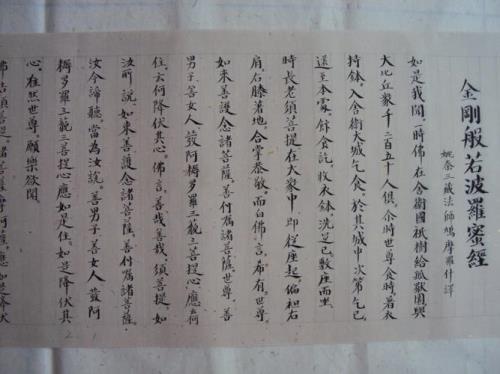 金剛般若波羅蜜經
姚秦三藏法師鳩摩羅什譯
如是我聞。一時佛。在舍衛國祇樹給孤獨園。與
大比丘衆。千二百五十人俱。尒時世尊。食時。著衣
持鉢。入舍衛大城乞食。於其城中。次第乞已。
還至本處。飯食訖。收衣鉢。洗足已。敷座而坐。
時長老須菩提。在大衆中。即從座起。偏袒右
肩。右膝著地。合掌恭敬。而白佛言。希有。世尊。
如來善護念諸菩薩。善付囑諸菩薩。世尊。善
男子。善女人。發阿耨多羅三藐三菩提心。應云何
住。云何降伏其心。佛言。善哉。善哉。須菩提。如
汝所說。如來善護念諸菩薩。善付囑諸菩薩。
汝今諦聽。當為汝說。善男子。善女人。發阿
耨多羅三藐三菩提心。應如是住。如是降伏其
心。唯然。世尊。願樂欲聞。
佛告須菩提。諸菩薩